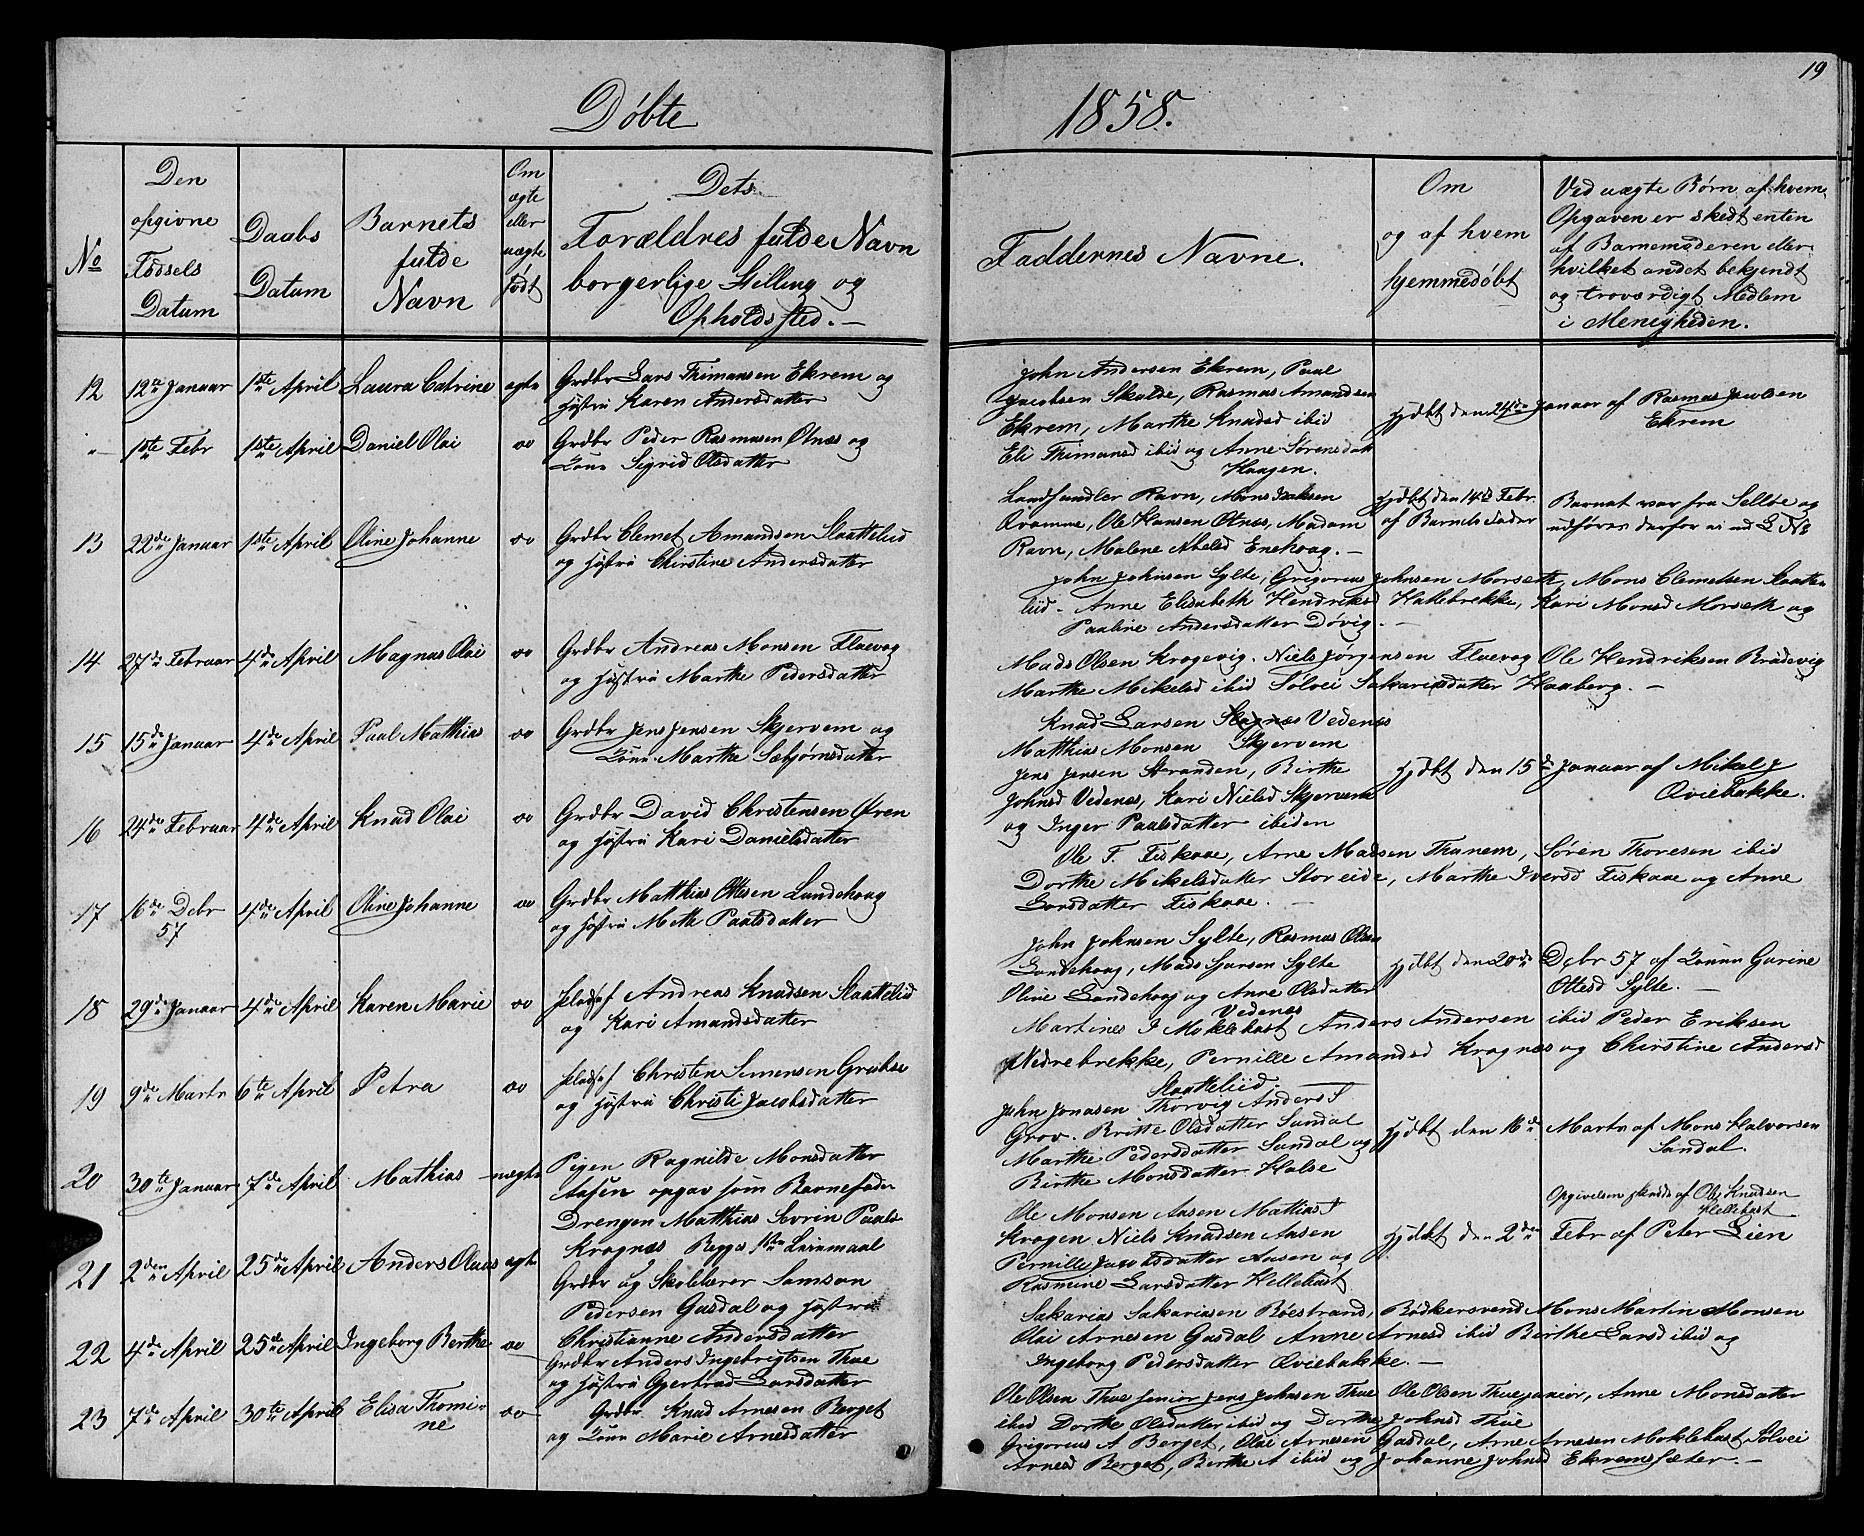 19
Døbte 1858.
No
Den opgivne Fødsels Datum
Daabs Datum
Barnets fulde Navn
Om ægte eller uægte født
Dets Forældres fulde Navn borgerlige Stilling og Opholdssted. –
Faddernes Navne.
Om og af hvem hjemmedøbt
Ved uægte Børn af hvem Opgaven er skedt enten af Barnemoderen eller hvilket andet bekjendt og troværdigt Medlem i Menigheden.
12 12te Januar 1ste April Laura Catrine ægte Grdbr Lars Thimansen Ekrem og
Hustru Karen Andersdatter
John Andersen Ekrem, Paal
Jacobsen Skolde, Rasmus Amandsen
Ekrem, Marthe Knudsd ibid
Eli Thimansd ibid og Anne Sørensdatt
Haagen.
hjdbt den 24de Januar af Rasmus Jacobsen
Ekrem
" 1ste Febr 1ste April Daniel Olai do Grdbr Peder Rasmusen Otnæs og
Kone Sigrid Olsdatter
Landhandler Ravn, Mons Isaksen
Qvamme, Ole Hansen Otnes, Madam
Ravn, Malene Abelsd Enehoug. –
hjdbt den 14de Febr.
af Barnets Fader
Barnet var fra Sellbø og
udføres derfor ei ud L No
13 22de Januar 1ste April Oline Johanne do Grdbr Clemet Amandsen Slaattelid
og Hustru Chirstine Andersdatter
John Johnsen Sylte, Grigorius Johnsen Morseth, Mons Clemetsen Slaatte
liid. Anne Elisabeth Hendriksd Hallebrekke, Kari Monsd Morseth og
Pauline Andersdatter Døvig. –
14 27de Februar 4de April Magnus Olai do Grdbr Andreas Monsen Flaevog
og Hustru Marthe Pedersdatter
Mads Olsen Krogevig. Niels Jørgensen Flaevog Ole Hendriksen Bradevig
Marthe Mikelsd ibid Sølvei Sakariasdatter Haaberg. –
15 15de Januar 4de April Paal Matthias do Grdbr Jens Jensen Skjervem og
Kone Marthe Sæbjørnsdatter
Knud Larsen Vedenes
Matthias Monsen Skjervem
Jens Jensen Stranden, Birthe
Johnsd Vedenes, Kari Nielsd Skjervem
og Inger Paalsdatter ibiden
hjdbt den 15de Januar af Mikel J
Øviebakke.
16 24de Februar 4de April Knud Olai do Grdbr David Christensen Øren
og Hustru Kari Danielsdatter
Ole T. Fiskaae, Arne Madsen Thunem, Søren Thoresen ibid
Dorthe Mikelsdatter Storeide, Marthe Iversd Fiskaae og Anne
Larsdatter Fiskaae. –
17 16de Debr 57 4de April Oline Johanne do Grdbr Matthias Ottesen Landehoug
og Hustru Mette Paalsdatter
John Johnsen Sylte, Rasmus Olsen
Landehoug, Mads Sjursen Sylte
Oline Landehoug og Anne Olsdatter
Vedenes
hjdbt den 20de Debr 57 af Konen Gurine
Ottesd Sylte. –
18 29de Januar 4de April Karen Marie do Pladsf Andreas Knudsen Slaattelid
og Kari Amandsdatter
Martines J Moklebust Anders Andersen ibid Peder Eriksen
Nedrebrekke, Pernille Amandsd Krognæs og Chirstine Andersd
Slaatteliid.
19 9de Marts 6te April Petra do Pladsf Christen Simensen
og Hustru Christi Jacobsdatter
John Jonasen Thorvig Anders T
Grov. Britte Olsdatter Sandal
Marthe Pedersdatter Sandal og
Birthe Monsdatter Halse
hjdbt den 16de Marts af Mons Halvorsen
Sandal.
20 30te Januar 7de April Mathias uægte Pigen Ragnilde Monsdatter
Aasen opgav som Barnefader
Drengen Matthias Severin Paals
Krognæs Begges 1ste Leiermaal
Ole Monsen Aasen Mathias
Krogen Niels Knudsen Aasen
Pernille Jacobsdatter Aasen og
Rasmine Larsdatter Hellebust
hjdbt den 2den Febr af Peter Lien
Opgivelsen skedde af Ole Knudsen
Hellebust
21 2den April 25de April Anders Olaus ægte Grdbr og Skolelærer Samson
Pedersen Gusdal og Hustru
Christianne Andersdatter
Sakarias Sakariasen Boestrand, Bødkersvend Mons Martin Monsen
Olai Arnesen Gusdal Anne Arnesd ibid Birthe Larsd ibid og
Ingeborg Pedersdatter Øviebakke. –
22 4de April 25de April Ingeborg Berthe do Grdbr Anders Ingebrigtsen Thue
og Hustru Gjertrud Larsdatter
Ole Olsen Thue senior Jens Johnsen Thue Ole Olsen Thue junior, Anne Monsdatter
ibid Dorthe Olsdatter ibid og Dorthe Johnsd Thue
23 7de April 30te April Elisa Thomine do Grdbr Knud Arnesen Berget
og Kone Marie Arnesdatter
Grigorius A Berget, Olai Arnesen Gusdal, Arne Arnesen Moklebust Sølvei
Arnesd Berget, Berthe A ibid og Johanne Johnsd Ekremsæter. –